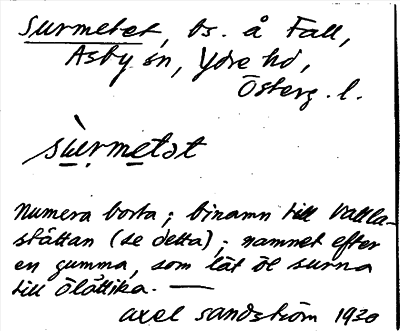 Surmetet, bs. å Fall,
Asby sn, Ydre hd,
Österg. l.
sùrmetət
Numera borta; binamn till Vattla-
stättan (se detta); namnet efter
en gumma, som lät öl surna
till ölättika. —
Axel Sandström 1930